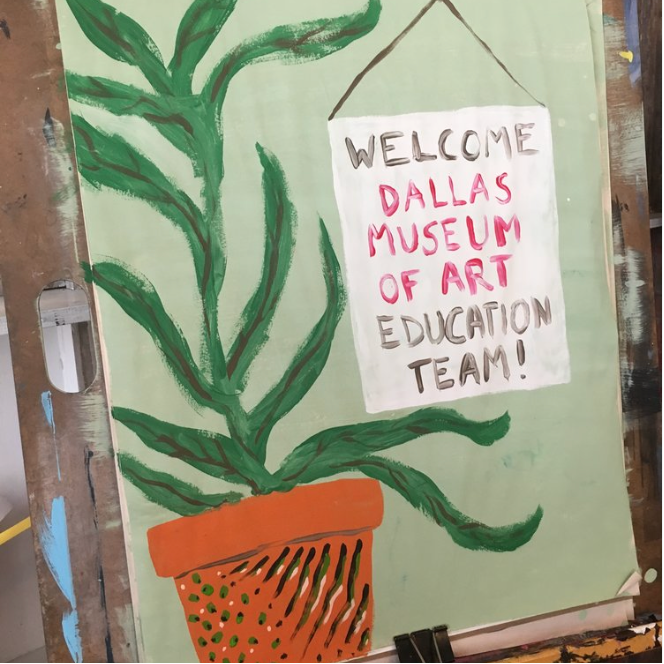 WELCOME
DALLAS
MUSEUM
OF ART
EDUCATION
TEAM!